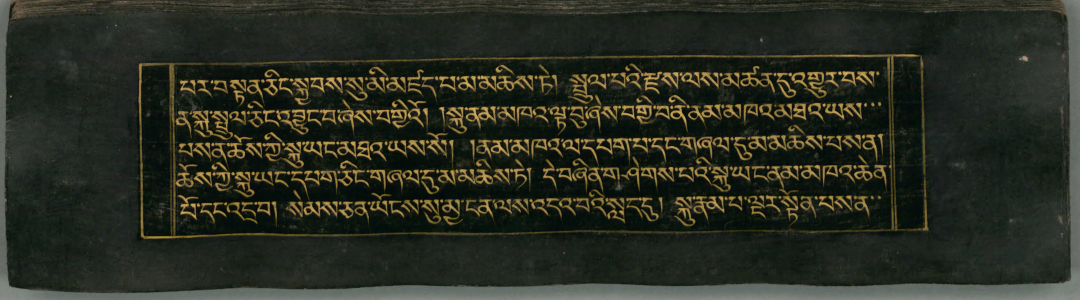 པར་བསྟན་ཅིང་སྐྱབས་སུ་མི་མངོད་པ་མ་མཆིས་ཏེ། སྤྲུལ་པའི་རྫས་ལས་མཚན་དུ་འགྱུར་བས་
ན་སྐུ་སྤྲུལ་ཅིང་འབྱུང་བ་ཞེས་བགྱིའོ། །སྐུ་ནམ་མཁའ་ལྟ་བུ་ཞེས་བགྱི་བ་ནི་ནམ་མཁའ་མཐའ་ཡས་
པས་ན་ཆོས་ཀྱི་སྐུ་ཡང་མཐའ་ཡས་སོ། །ནམ་མཁའ་ལ་དཔག་པ་དང་གཞལ་དུ་མ་མཆིས་པས་ན།
ཆོས་ཀྱི་སྐུ་ཡང་དཔག་ཅིང་གཞལ་དུ་མ་མཆིས་ཏེ། དེ་བཞིན་གཤེགས་པའི་སྐུ་ཡང་ནམ་མཁའ་ཆེན་
པོ་དང་འདྲ་བ། སེམས་ཅན་ཡོངས་སུ་མྱ་ངན་ལས་འདའ་བའི་སླད་དུ། སྐུ་རྣམ་པ་ལྔར་སྟོན་པས་ན་